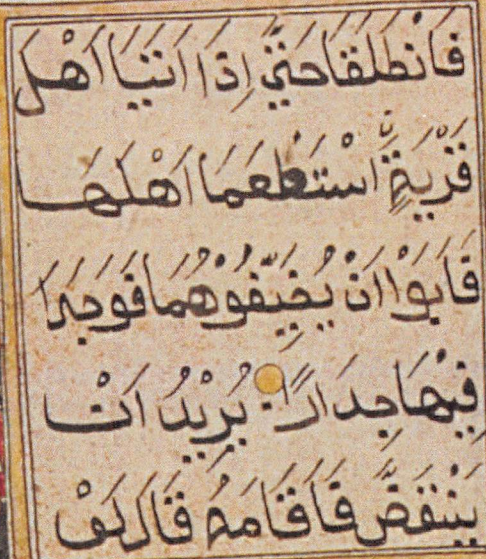 فَانْطَلَقَا حَتّٰى اِذَا اَتَيَا اَهْلَ
قَرْيَةٍ اسْتَطْعَمَا اَهْلَهَا
فَاَبَوْا اَنْ يُضَيِّفُوْهُمَا فَوَجَدَا
فِيْهَا جِدَارًا يُرِيْدُ اَنْ
يَنْقَضَّ فَاَقَامَهُ قَالَ لَوْ